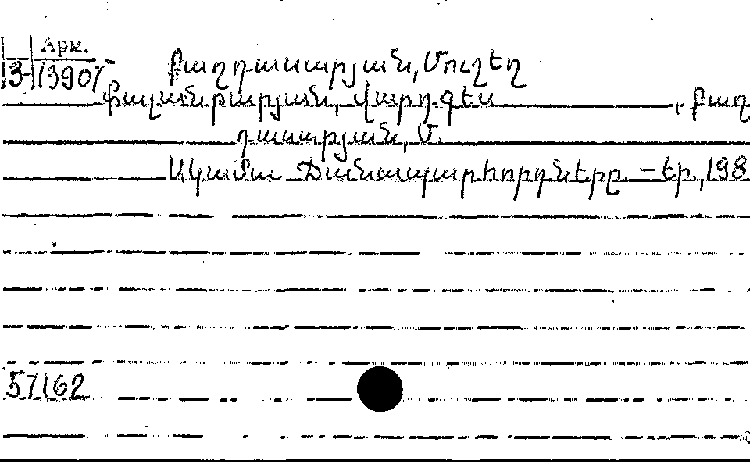 Арк.
13-13907 Բաղդասարյան, Մուշեղ
Փալանքարյան, Վարդգես , Բաղ
դասարյան, Մ.
Ակամա Ճանապարհորդները. – Եր., 198
57162